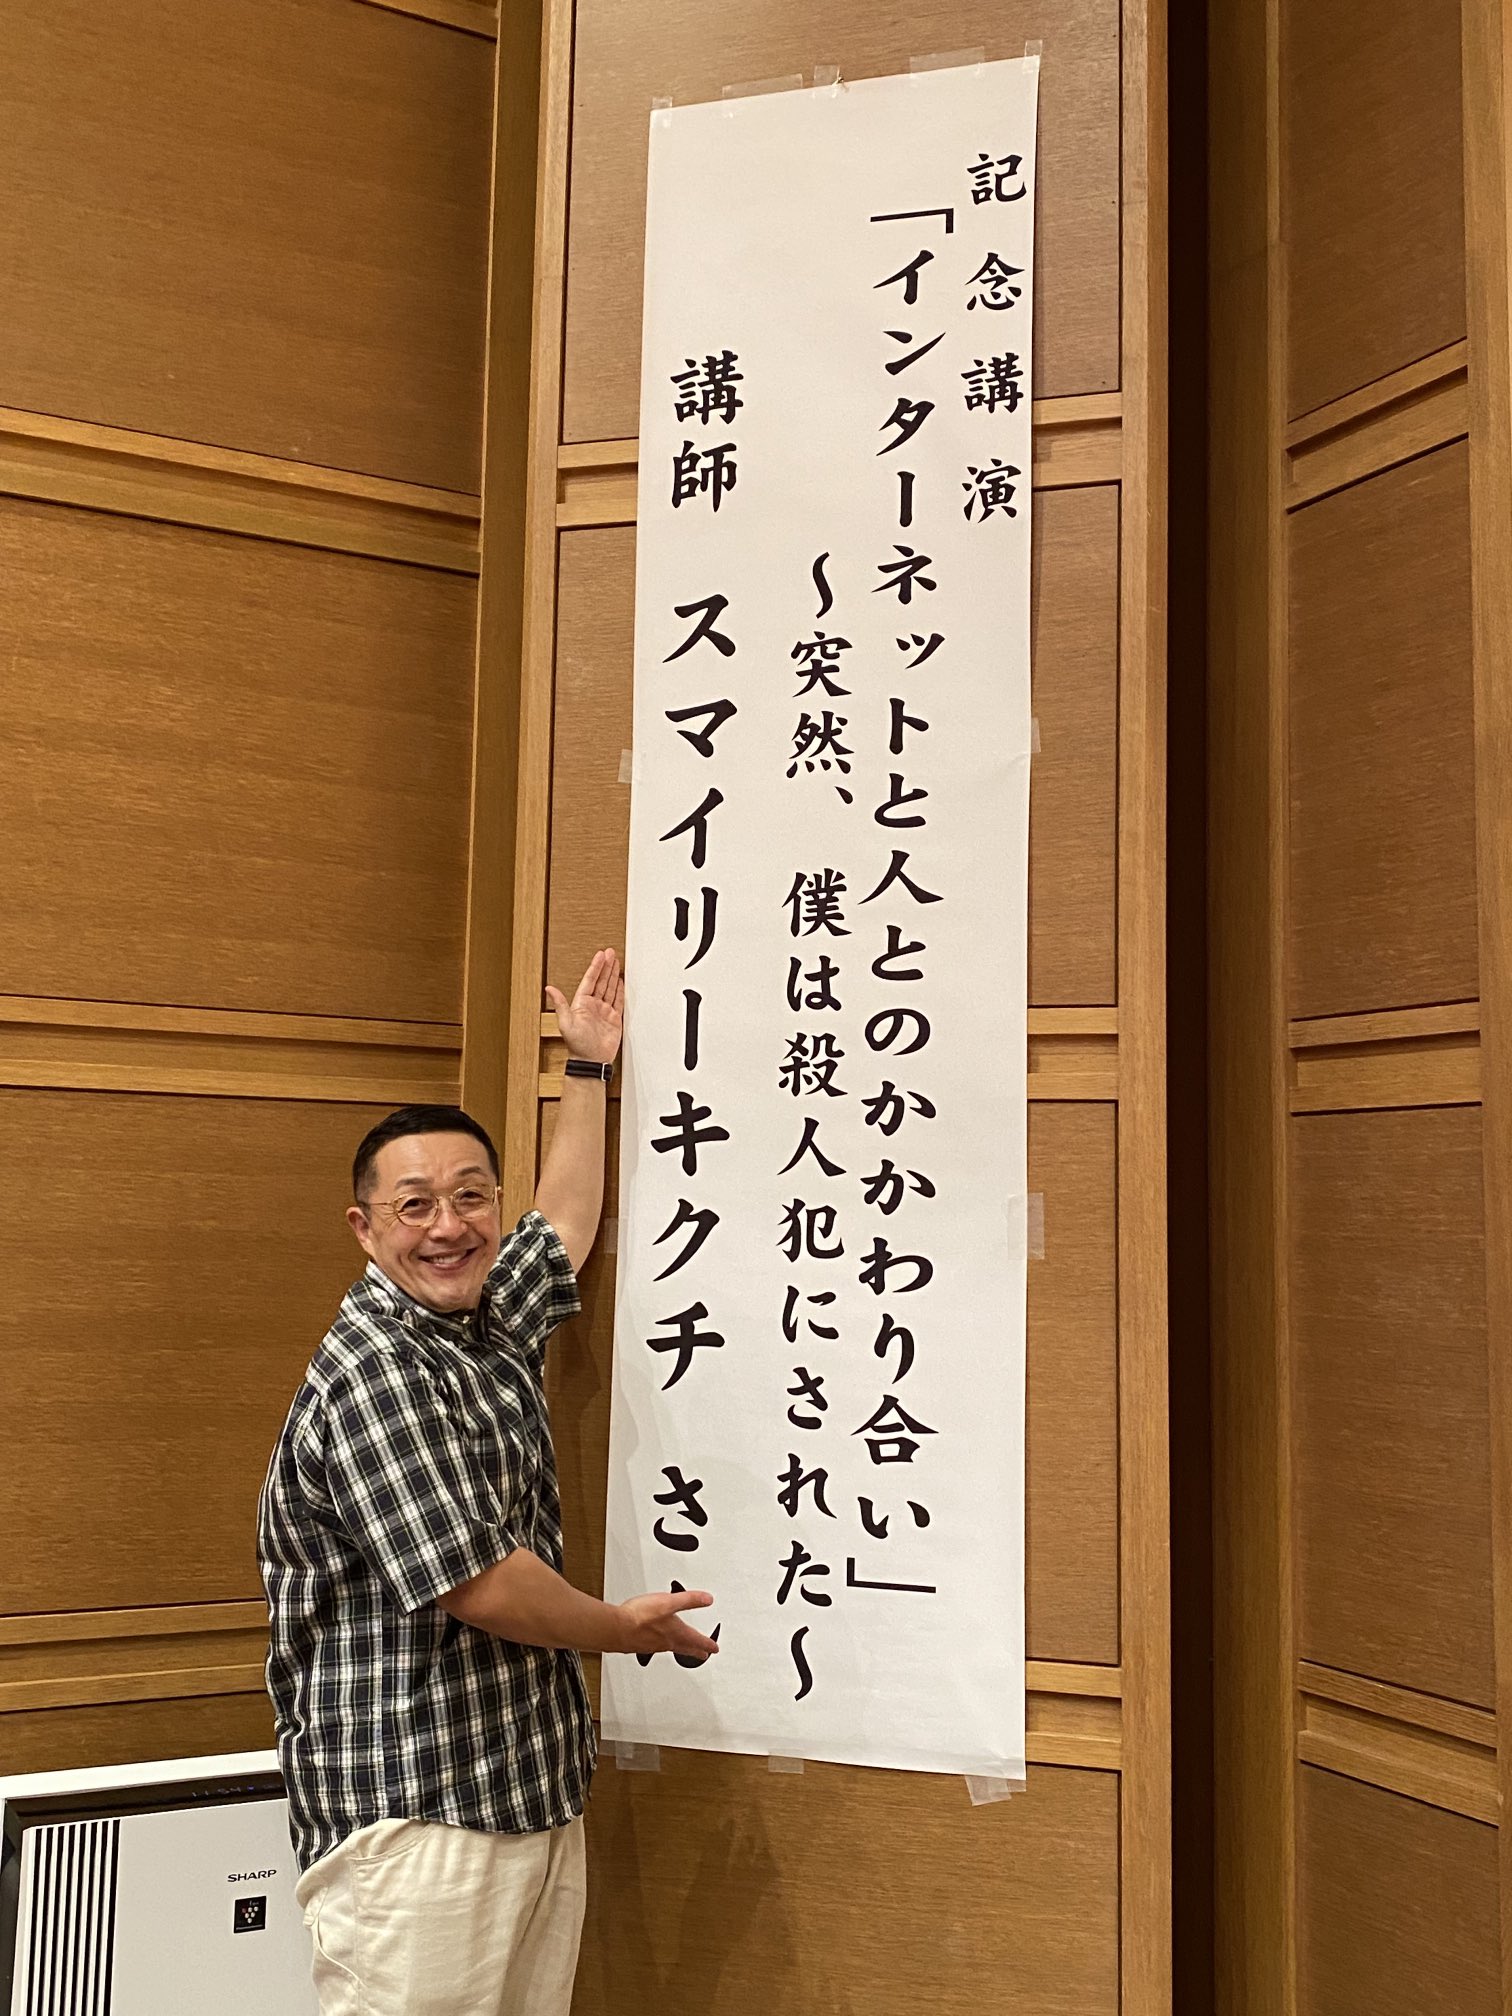 記念講演
「インターネットと人とのかかわり合い」
～突然、僕は殺人犯にされた～
講師 スマイリーキクチ さん
SHARP